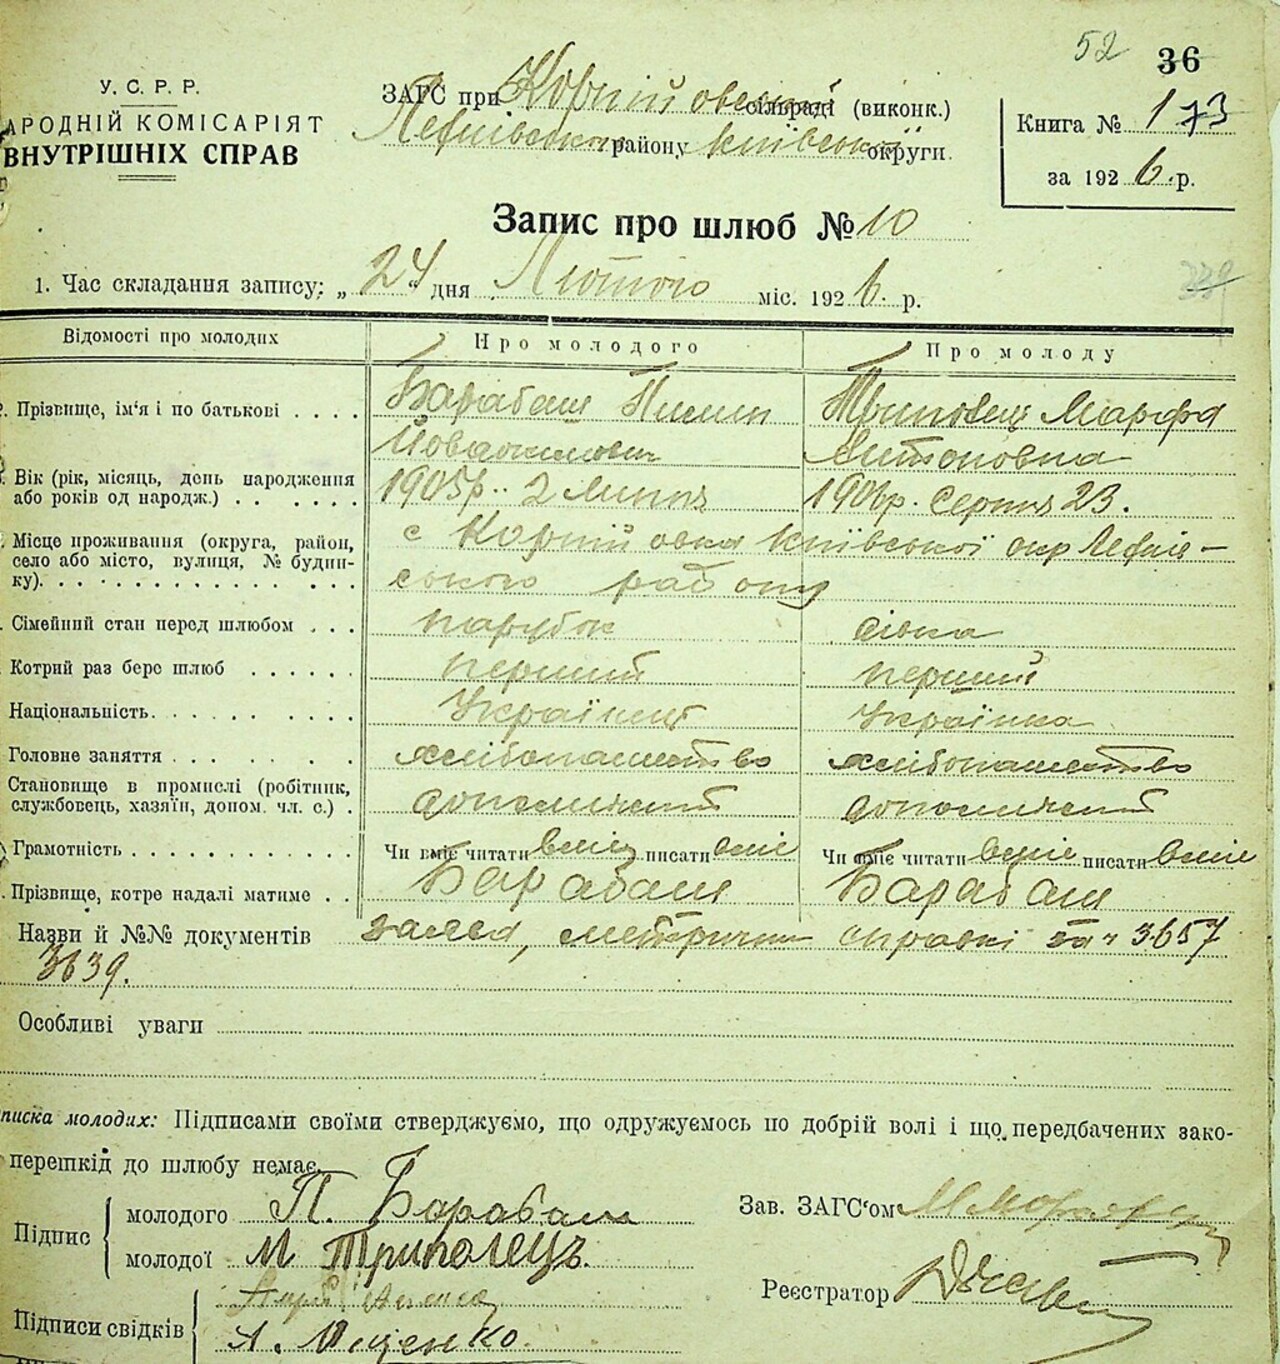 52 36
У. С. Р. Р.
АРОДНІЙ КОМІСАРІЯТ
ВНУТРІШНІХ СПРАВ
ЗАГС при Корнійовській сільраді (виконк.)
району Київської округи.
Книга № 173
за 1926 р.
Запис про шлюб № 10
339
1. Час складання запису: „24" дня Лютого міс. 1926. р.
Відомості про молодих Про молодого Про молоду
Прізвище, ім'я і по батькові . . . . Барабаш Пилип Триполец Марфа
Антоновна
Вік (рік, місяць, день народження
або років од народж.) . . . . . . 1905р. 2 Липня 1906р. Серпня 23.
Місце проживання (округа, район,
село або місто, вулиця, № будин-
ку). . . . . . . . . . . . . .
с Корнійовка Київської окр
ського району
Сімейний стан перед шлюбом . . . парубок дівка
Котрий раз бере шлюб . . . . . . перший перший
Національність. . . . . . . . . Українец Українка
Головне заняття . . . . . . . хлібопашество хлібопашество
Становище в промислі (робітник,
службовець, хазяїн, допом. чл. с.) .
Грамотність . . . . . . . . . . . . Чи вміє читати вміє писати вміє Чи вміє читати вміє писати вміє
Прізвище, котре надалі матиме . . Барабаш Барабаш
Назви й №№ документів заява, метричні справкі за ч 3657
3639.
Особливі уваги
писка молодих: Підписами своїми стверджуємо, що одружуємось по добрій волі і що передбачених зако-
перешкід до шлюбу немає.
Підпис
молодого П. Барабаш
молодої М Триполецъ.
Зав. ЗАГС'ом
Реєстратор
Підписи свідків
А. Іщенко.